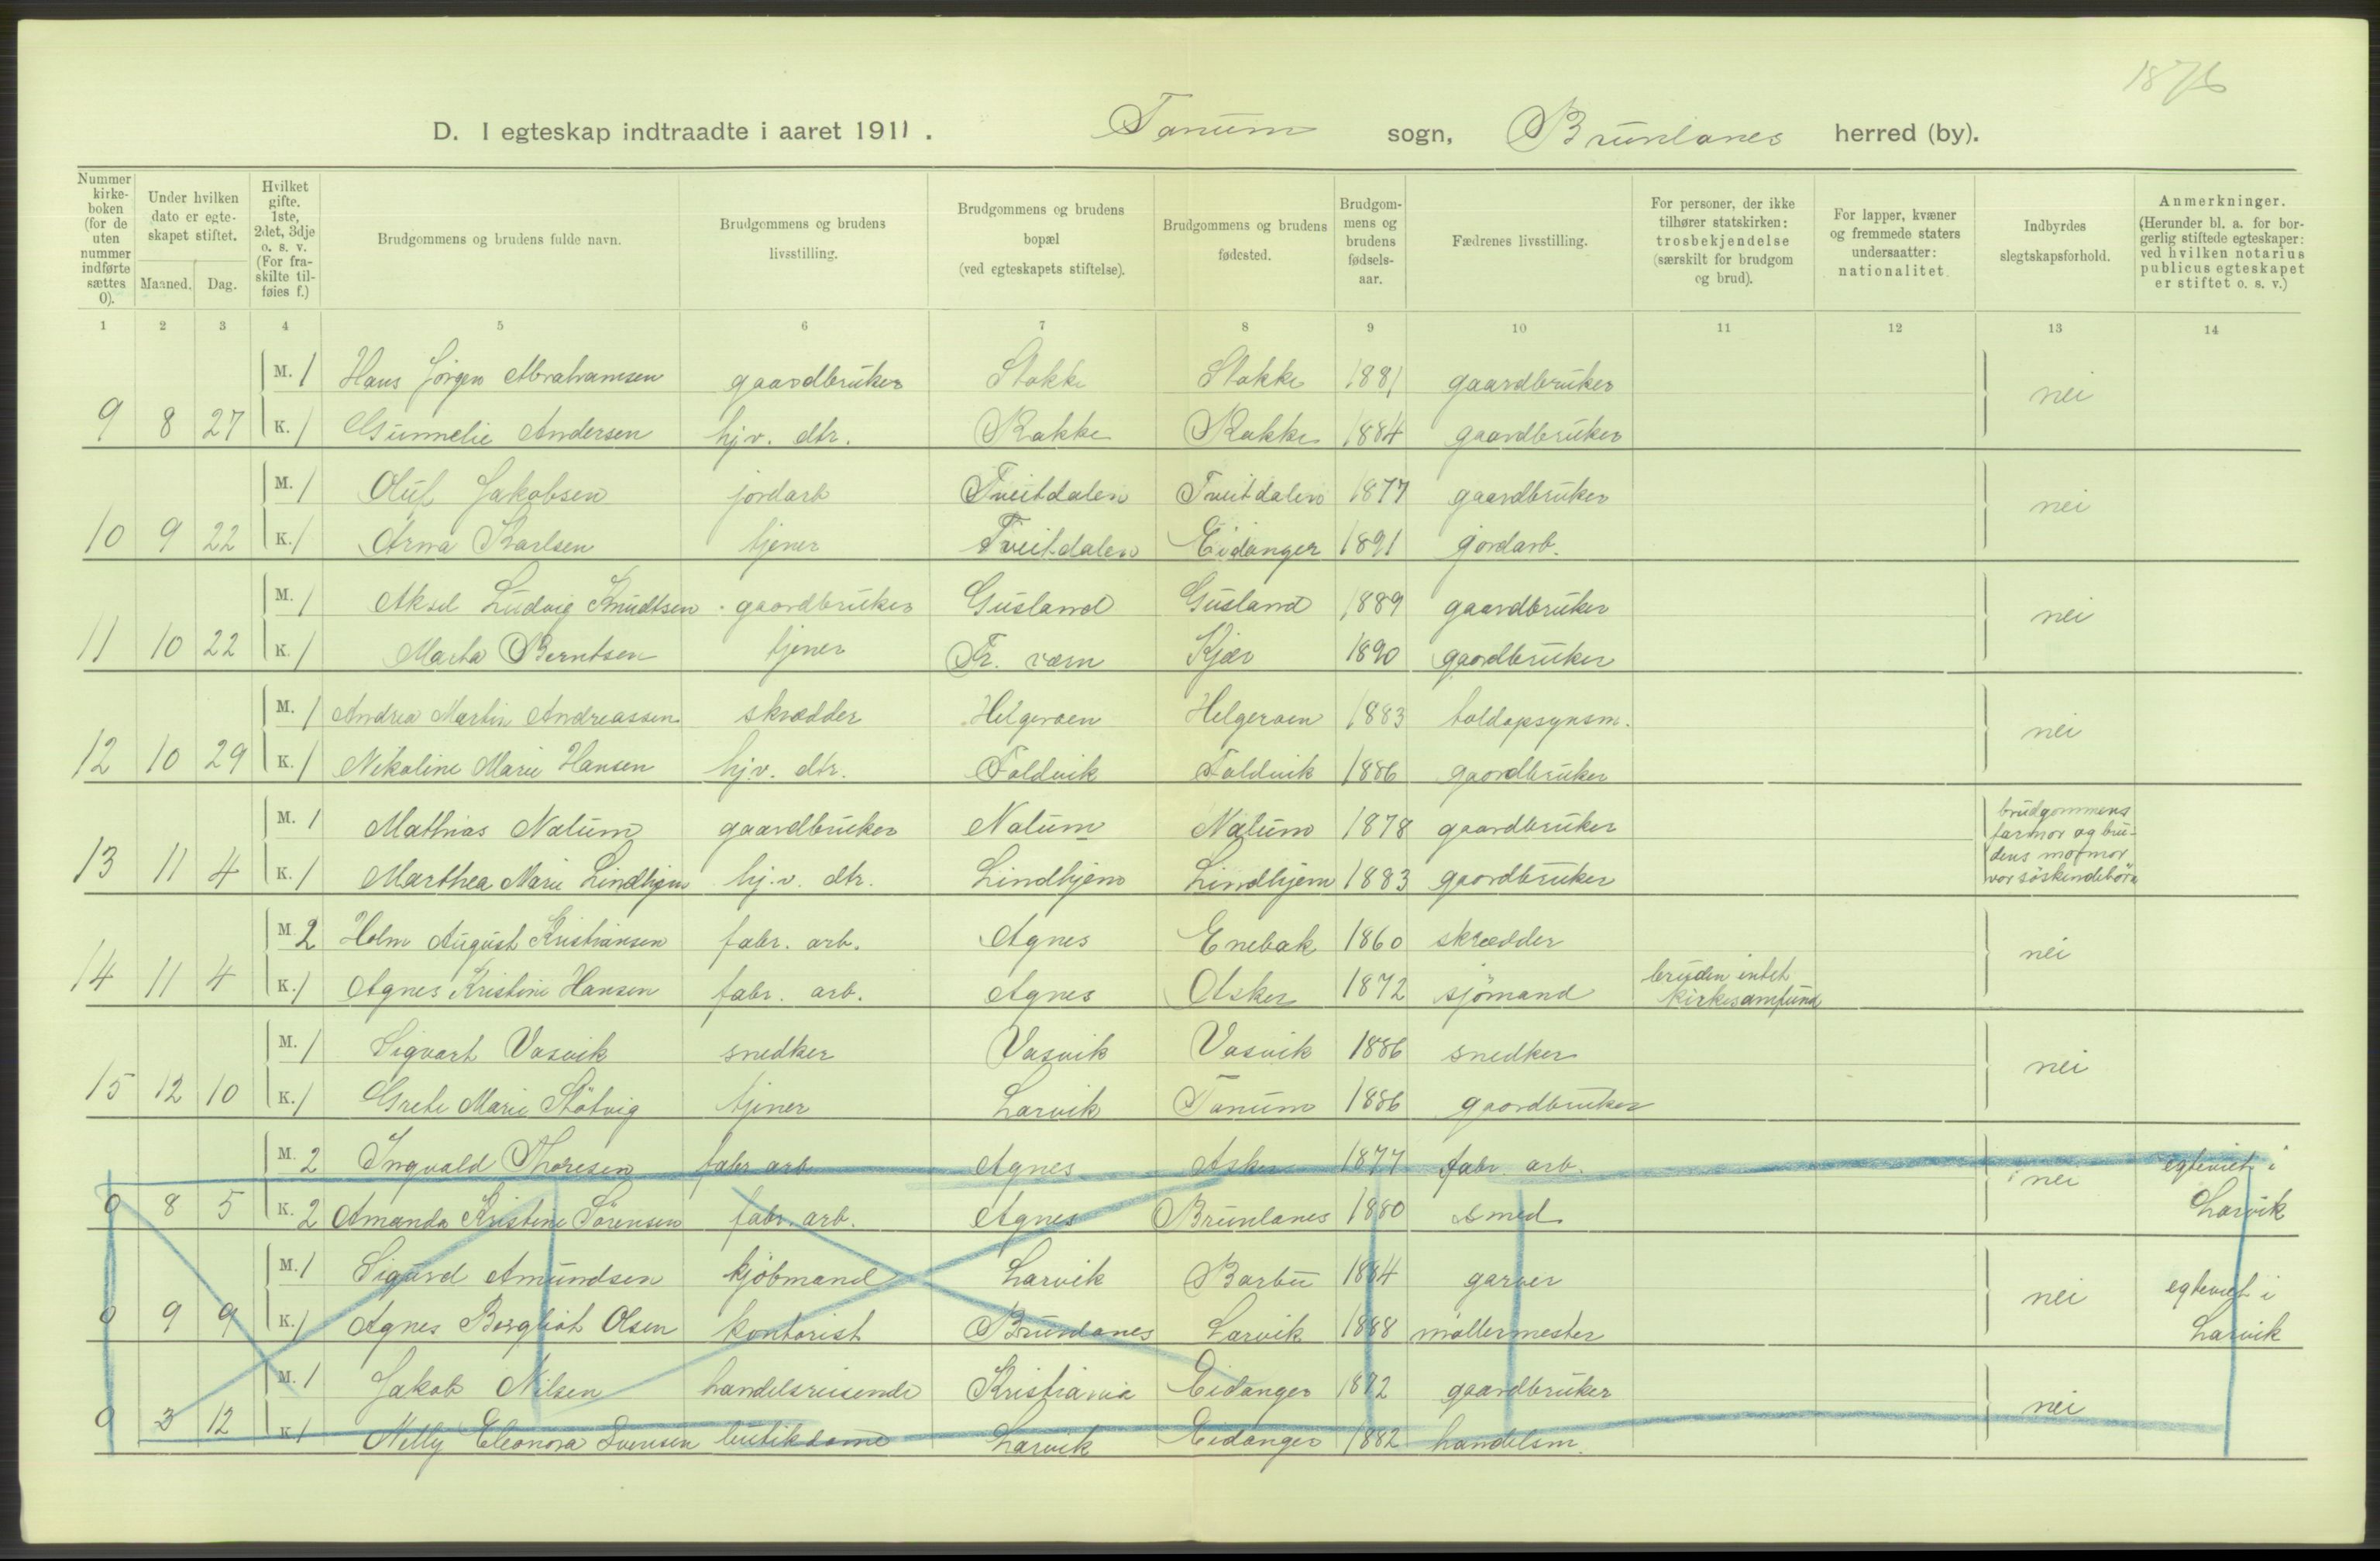 D. I egteskap indtraadte i aaret 1911. Tanum sogn, Brunlanes herred (by).
Nummer kirkeboken (for de uten nummer indførte sættes 0).
Under hvilken dato er egteskapet stiftet.
Maaned. Dag.
Hvilket gifte. 1ste, 2det, 3dje o. s. v. (For fraskilte tilføies f.)
Brudgommens og brudens fulde navn.
Brudgommens og brudens livsstilling.
Brudgommens og brudens bopæl (ved egteskapets stiftelse).
Brudgommens og brudens fødested.
Brudgommens og brudens fødselsaar.
Fædrenes livsstilling.
For personer, der ikke tilhører statskirken: trosbekjendelse (særskilt for brudgom og brud).
For lapper, kvæner og fremmede staters undersaatter: nationalitet.
Indbyrdes slegtskapsforhold.
Anmerkninger. (Herunder bl. a. for borgerlig stiftede egteskaper: ved hvilken notarius publicus egteskapet er stiftet o. s. v.)
1 2 3 4 5 6 7 8 9 10 11 12 13 14
M. 1 Hans Jörgen Abrahamsen gaardbruker Stokke Stokke 1881 gaardbruker nei
9 8 27 K. 1 Gunnelie Andersen hjv. dtr. Rakke Rakke 1884 gaardbruker
M. 1 Oluf Jakobsen jordarb Tveitdalen Tveitdalen 1877 gaardbruker nei
10 9 22 K. 1 Anna Karlsen tjener Tveitdalen Eidanger 1891 jordarb.
M. 1 Aksel Ludvig Knudtsen gaardbruker Gusland Gusland 1889 gaardbruker nei
11 10 22 K. 1 Marta Berntsen tjener Fr. værn Kjær 1890 gaardbruker
M. 1 Andrea Martin Andreassen skrædder Helgeroen Helgeroen 1883 toldopsynsm. nei
12 10 29 K. 1 Nikoline Marie Hansen hjv. dtr. Foldvik Foldvik 1886 gaardbruker
M. 1 Mathias Nalum gaardbruker Nalum Nalum 1878 gaardbruker brudgommens farmor og bru-
13 11 4 K. 1 Marthea Marie Lindhjem hj.v. dtr. Lindhjem Lindhjem 1883 gaardbruker dens mormor var söskendebörn
M. 2 Holm August Kristiansen fabr. arb. Agnes Enebak 1860 skrædder nei
14 11 4 K. 1 Agnes Kristine Hansen fabr. arb. Agnes Asker 1872 sjömand bruden intet kirkesamfund
M. 1 Sigvart Vasvik snedker Vasvik Vasvik 1886 snedker nei
15 12 10 K. 1 Grete Marie Stötvig tjener Larvik Tanum 1886 gaardbruker
M. 2 Ingvald Thoresen fabr arb Agnes Asker 1877 fabr arb. nei egteviet i
0 8 5 K. 2 Amanda Kristine Sörensen fabr. arb. Agnes Brunlanes 1880 smed Larvik
M. 1 Sigurd Amundsen kjöbmand Larvik Barbu 1884 garver nei egteviet i
0 9 9 K. 1 Agnes Borgliot Olsen kontorist Brunlanes Larvik 1888 möllermester Larvik
M. 1 Jakob Nilsen handelsreisende Kristiania Eidanger 1872 gaardbruker nei
0 3 12 K 1 Nelly Eleonora Svensen butikdame Larvik Eidanger 1882 handelsm.